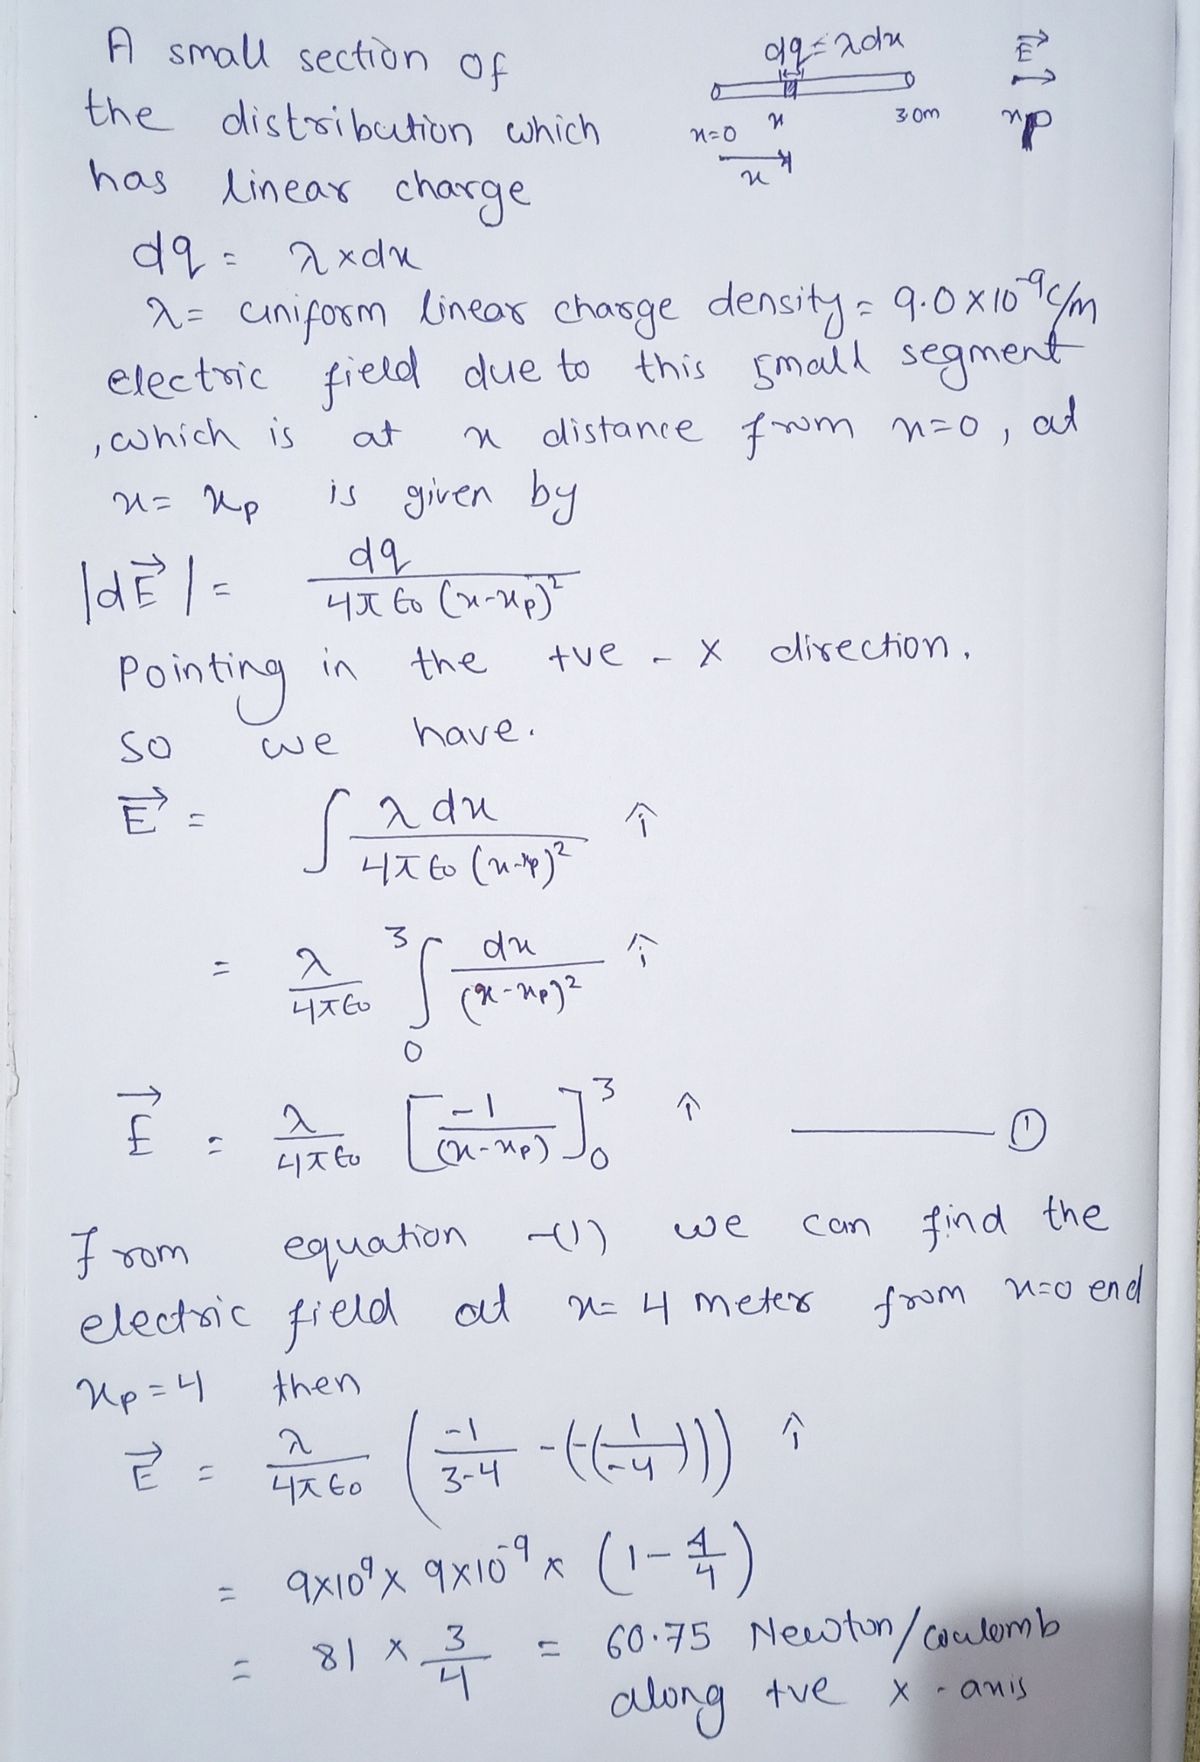 A small section of
the distribution which
has linear charge
dq = λdx
x=0
x
3.0m
x
E⃗
xp
dq = λ×dx
λ = uniform linear charge density = 9.0×10⁻⁹c/m
electric field due to this small segment
, which is at x distance from x=0, at
x= xp is given by
|dE⃗| = dq / 4πε₀ (x-xp)²
Pointing in the +ve - X direction.
so we have.
E⃗ = ∫ λdx / 4πε₀ (x-xp)² î
= λ/4πε₀ ₀∫³ dx / (x-xp)² î
E⃗ = λ/4πε₀ [-1/(x-xp)]₀³ î ——— ①
From equation -(1) we can find the
electric field at x= 4 meter from x=0 end
xp=4 then
E⃗ = λ/4πε₀ (-1/3-4 -(-(1/-4))) î
= 9×10⁹× 9×10⁻⁹ × (1-1/4)
= 81 × 3/4 = 60.75 Newton/coulomb
along +ve x - axis